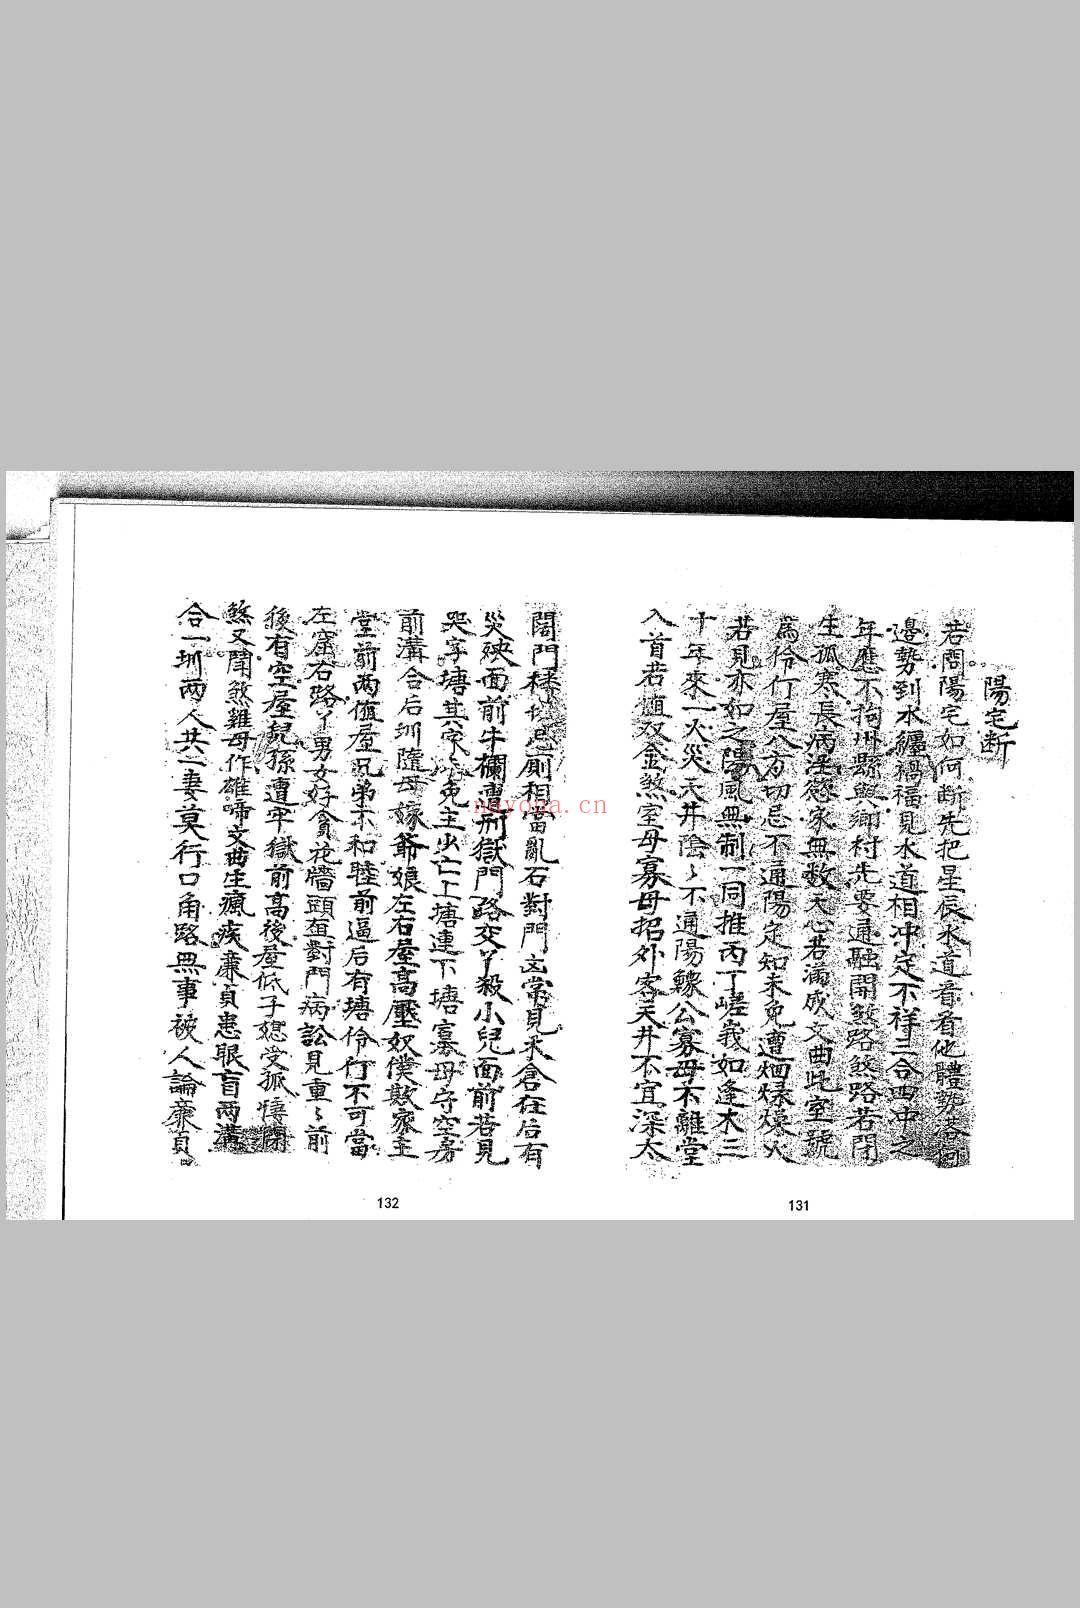 陽宅断
若問陽宅如何断先把星辰水道看看他體勢落何
邊勢到水纏禍福見水道相冲定不祥三合四中之
年應不拘州縣與鄉村先要通融開煞路煞路若閉
生孤寒長病淫慾家無数天心若滿成文曲此室號
為伶仃屋八方切忌不通陽定知未免遭燥火
若見亦如之陽風無制一同推丙丁嵯峩如逢木三
十年來一火災天井陰〻不通陽鰥公寡母不離堂
入首若值双金煞室母寡母招外客天井不宜深太
闊門相當亂石對門凶常見禾倉在后有
災殃面前牛欄遭刑獄門路交丫殺小兒面前若見
哭字塘其家〻免主少亡上塘連下塘寡母守空房
前溝合后圳隨母嫁爺娘左右屋高壓奴僕欺家主
堂前两值屋兄弟不和睦前逼后有塘伶仃不可當
左窟右路丫男女好貪花牆頭直對門病訟見重〻前
後有空屋兒孫遭牢獄前高後屋低子媳受孤悽開
煞又閉煞雞母作雄啼文曲生瘋疾廉貞患眼盲两溝
合一圳两人共一妻莫行口角路無事被人論廉貞
132
131
nayona.cn